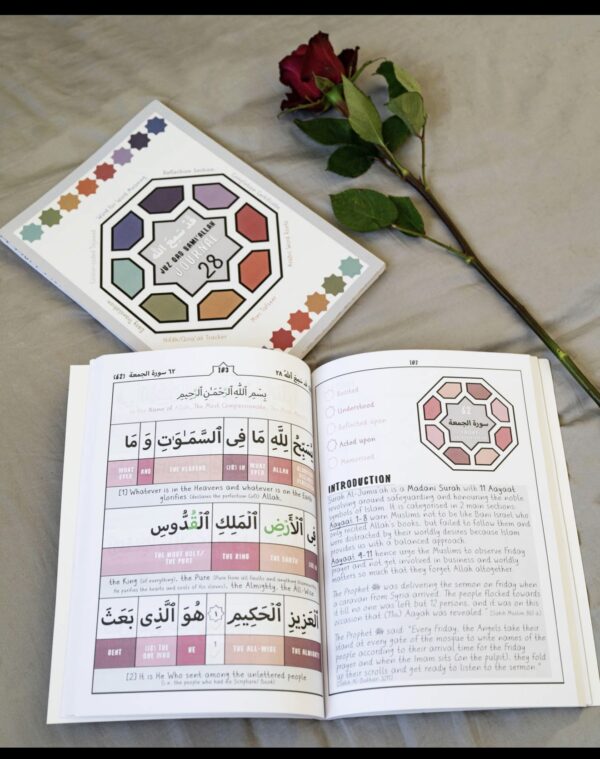 Reflection Section
Hifdh/Qura'at Tracker
Mini Tafseer
Arabic Word Roots
قد سمع الله
JUZ QAD SAMI'ALLAH
JOURNAL
28
٦٢ سورة الجمعة (62)
103
قد سمع الله ٢٨
بِسْمِ ٱللَّهِ ٱلرَّحْمَٰنِ ٱلرَّحِيمِ
In the Name of Allah, The Most Compassionate, The Most
يُسَبِّحُ لِلَّهِ مَا فِى ٱلسَّمَٰوَٰتِ وَ مَا
WHAT EVER AND THE HEAVENS (IS) IN WHAT EVER ALLAH
[1] Whatever is in the Heavens and whatever is on the Earth
glorifies (declares the perfection (of)) Allah,
فِى ٱلْأَرْضِ ٱلْمَلِكِ ٱلْقُدُّوسِ
THE MOST HOLY/ THE PURE THE KING THE EARTH
the King (of everything), the Pure (Pure from all faults and anything
He purifies the hearts and souls of His slaves), the Almighty, the All-Wise.
ٱلْعَزِيزِ ٱلْحَكِيمِ ١ هُوَ ٱلَّذِى بَعَثَ
SENT (IS) THE ONE WHO HE 1 THE ALL-WISE THE ALMIGHTY
[2] It is He Who sent among the unlettered people
(i.e. the people who had no Scripture/ Book)
107
Recited
Understood
Reflected upon
Acted upon
Memorised
62
سورة الجمعة
INTRODUCTION
Surah Al-Jumu'ah is a Madani Surah with 11 Aayaat
revolving around safeguarding and honouring the noble
symbols of Islam. It is categorised in 2 main sections:
Aayaat 1-8 warn Muslims not to be like Bani Israel who
only recited Allah's books, but failed to follow them and
were distracted by their worldly desires because Islam
provides us with a balanced approach.
Aayaat 9-11 hence urge the Muslims to observe Friday
prayer and not get involved in business and worldly
matters so much that they forget Allah altogether.
The Prophet ﷺ was delivering the sermon on Friday when
a caravan from Syria arrived. The people flocked towards
it till no one was left but 12 persons, and it was on this
occasion that (This) Aayah was revealed."
The Prophet ﷺ said: "Every Friday, the Angels take their
stand at every gate of the mosque to write names of the
people according to their arrival time for the Friday
prayer and when the Imam sits (on the pulpit), they fold
up their scrolls and get ready to listen to the sermon."